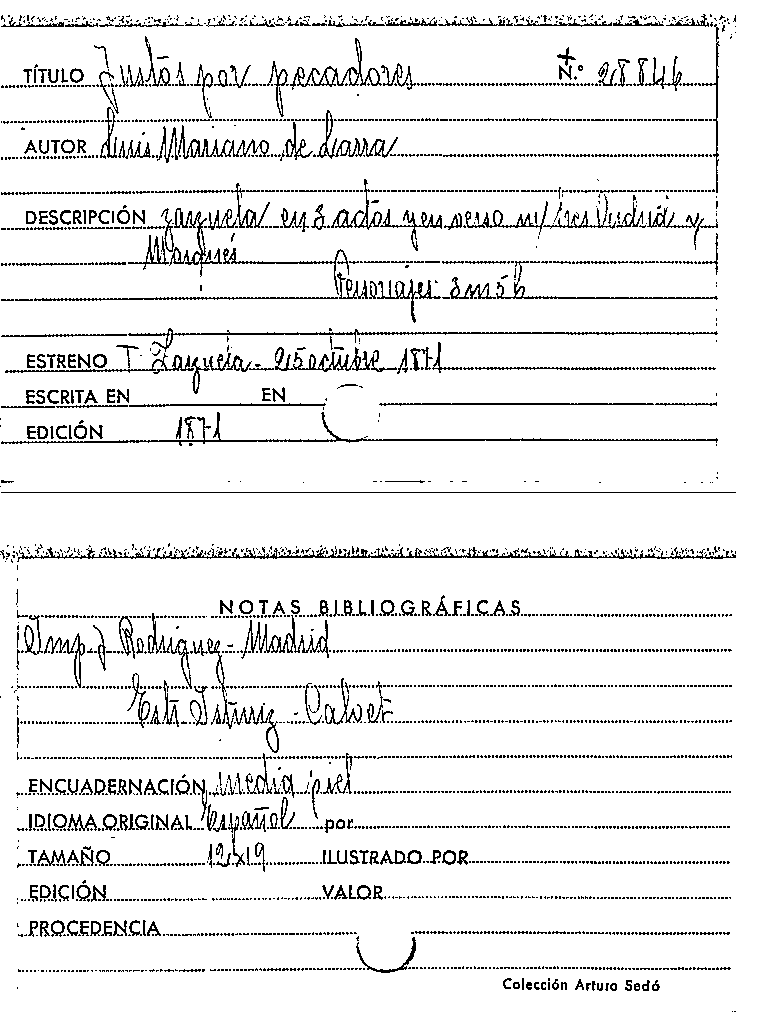 TÍTULO Justos por pecadores N.º 28846
AUTOR Luis Mariano de Larra
DESCRIPCIÓN zarzuela en 3 actos y en verso m/ tres Oudrid y
Marqués
Personajes 3 m 5 h
ESTRENO T. Zarzuela - 25 octubre 1871
ESCRITA EN EN
EDICIÓN 1871
NOTAS BIBLIOGRÁFICAS
Imp J Rodriguez - Madrid
Estr Isturiz - Calvet
ENCUADERNACIÓN media piel
IDIOMA ORIGINAL Español por
TAMAÑO 12x19 ILUSTRADO POR
EDICIÓN VALOR
PROCEDENCIA
Colección Arturo Sedó